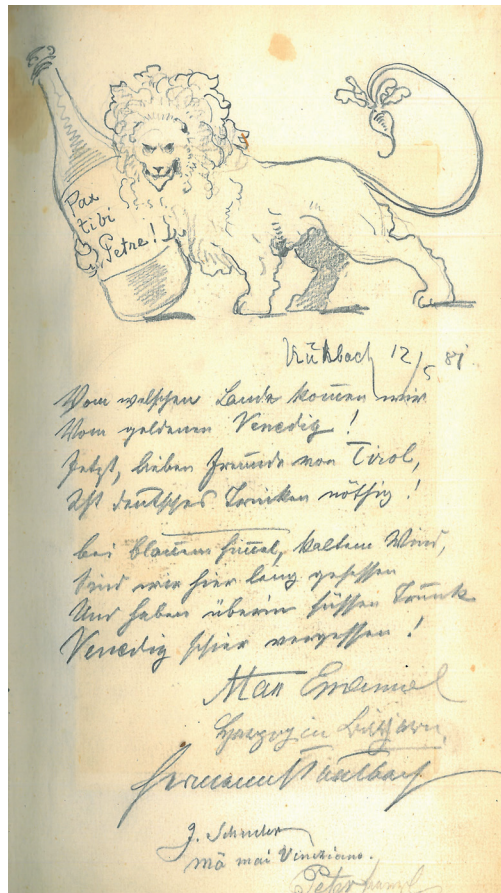 Pax
tibi
Petre!
12/5 81
Vom welschen Lande kom̄en wir
Vom goldenen Venedig!
Jetzt, lieben Freunde von Tirol,
Ist deutsches Trinken nöthig!
Bei blauem Him̄el, kaltem Wind,
Sind wir hier lang gesessen
Und haben überm süssen Trunk
Venedig schier vergessen!
Max Emanuel
Herzog in Bayern.
Hermann
J.
mai Veneziano.
Peter